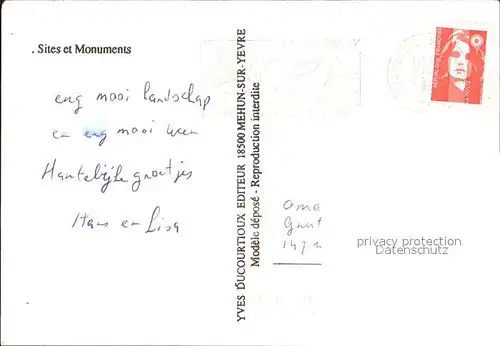 . Sites et Monuments
eng mooi landschap
en eng mooi weer
Hartelijke groetjes
Hans en Lisa
YVES DUCOURTIOUX EDITEUR 18500 MEHUN-SUR-YEVRE
Modèle déposé - Reproduction interdite
REPUBLIQUE FRANÇAISE
oma
privacy protection
Datenschutz